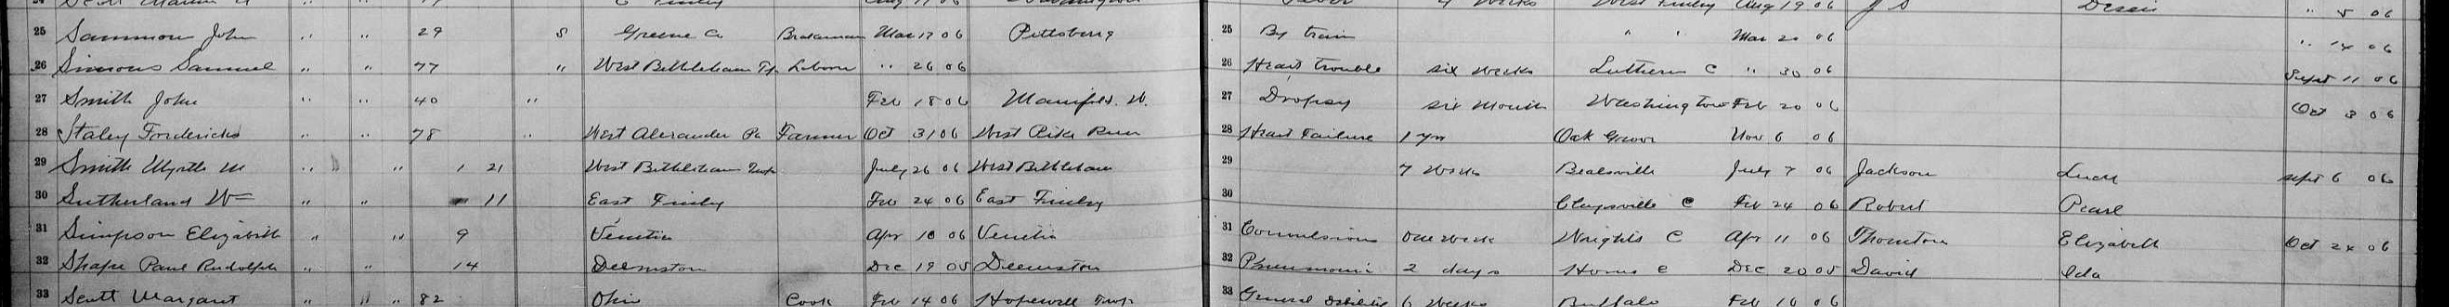 25 Sammon John " " 29 S Greene Co Brakeman Mar 17 06 Pittsburg 25 By train " " Mar 20 06 " 14 06
26 Simons Samuel " " 77 " West Bethlehem Tp Labor " 26 06 26 Heart trouble six weeks Lutheran C " 30 06 Sept 11 06
27 Smith John " " 40 " Feb 18 06 27 Dropsy six month Washington Feb 20 06 Oct 3 06
28 Staley Fredericks " " 78 " West Alexander Pa Farmer Oct 31 06 West Pike Run 28 Heart Failure 1 yr Oak Grove Nov 6 06
29 Smith Myrtle M " " 1 21 West Bethlehem Twp July 26 06 West Bethlehem 29 7 weeks Bealsville July 7 06 Jackson Sept 6 06
30 Sutherland Wm " " 11 East Finley Feb 24 06 East Finley 30 Claysville C Feb 24 06 Robert Pearl
31 Simpson Elizabeth " " 9 Venetia Apr 10 06 Venetia 31 Convulsions one week Wrights C Apr 11 06 Thornton Elizabeth Oct 24 06
32 Shape Paul Rudolph " " 14 Deemston Dec 19 05 Deemston 32 Pneumonia 2 days Horns C Dec 20 05 David Ida
33 Scott Margaret " " " 82 Ohio Cook Feb 14 06 Hopewell Twp 33 General debility 6 weeks Buffalo Feb 16 06